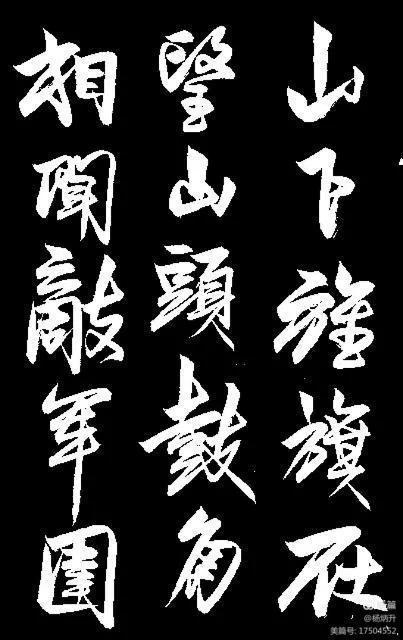 山下旌旗在
朢山頭鼓角
相聞敵軍圍
美篇
@杨炳升
美篇号: 17504552